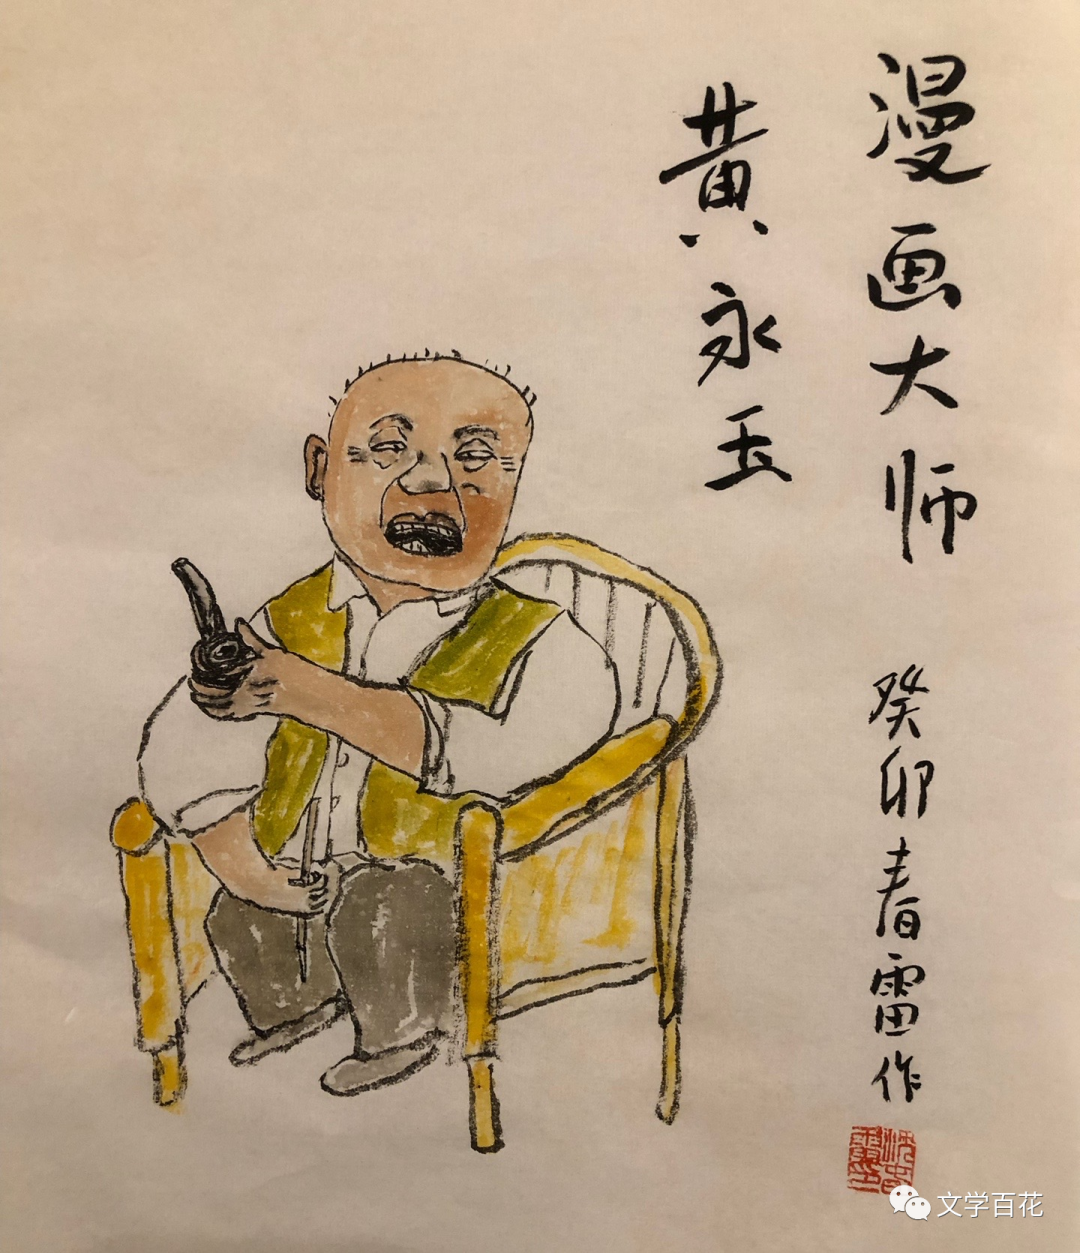 漫画大师
黄永玉
癸卯春雷作
文学百花